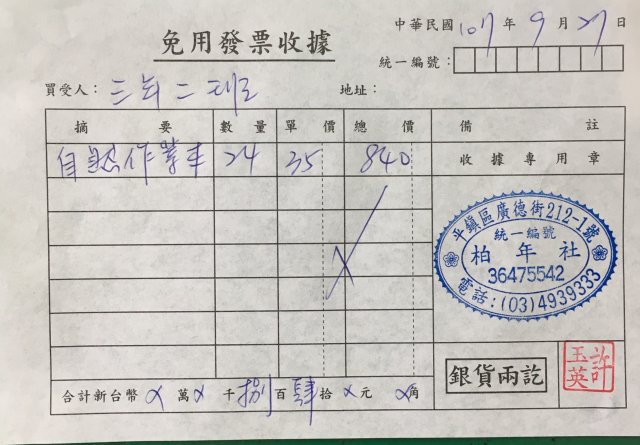 中華民國107年9月27日
免用發票收據
統一編號：
買受人：三年二班 地址：
摘要 數量 單價 總價 備註
自然作業本 24 35 840 收據專用章
平鎮區廣德街212-1號
統一編號
柏年社
36475542
電話：(03)4939333
銀貨兩訖
許玉英
合計新台幣 X 萬 X 千 捌 百 肆 拾 X 元 X 角